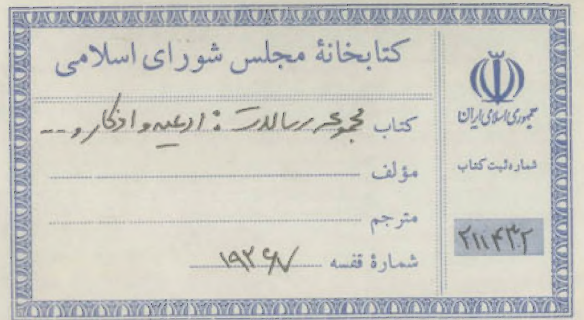 کتابخانهٔ مجلس شورای اسلامی
کتاب مجموعه رسالات : ادعیه و اذکار و ...
مؤلف
مترجم
شمارهٔ قفسه ۱۹۲۶۷
جمهوری اسلامی ایران
شماره ثبت کتاب
۲۱۱۴۳۲